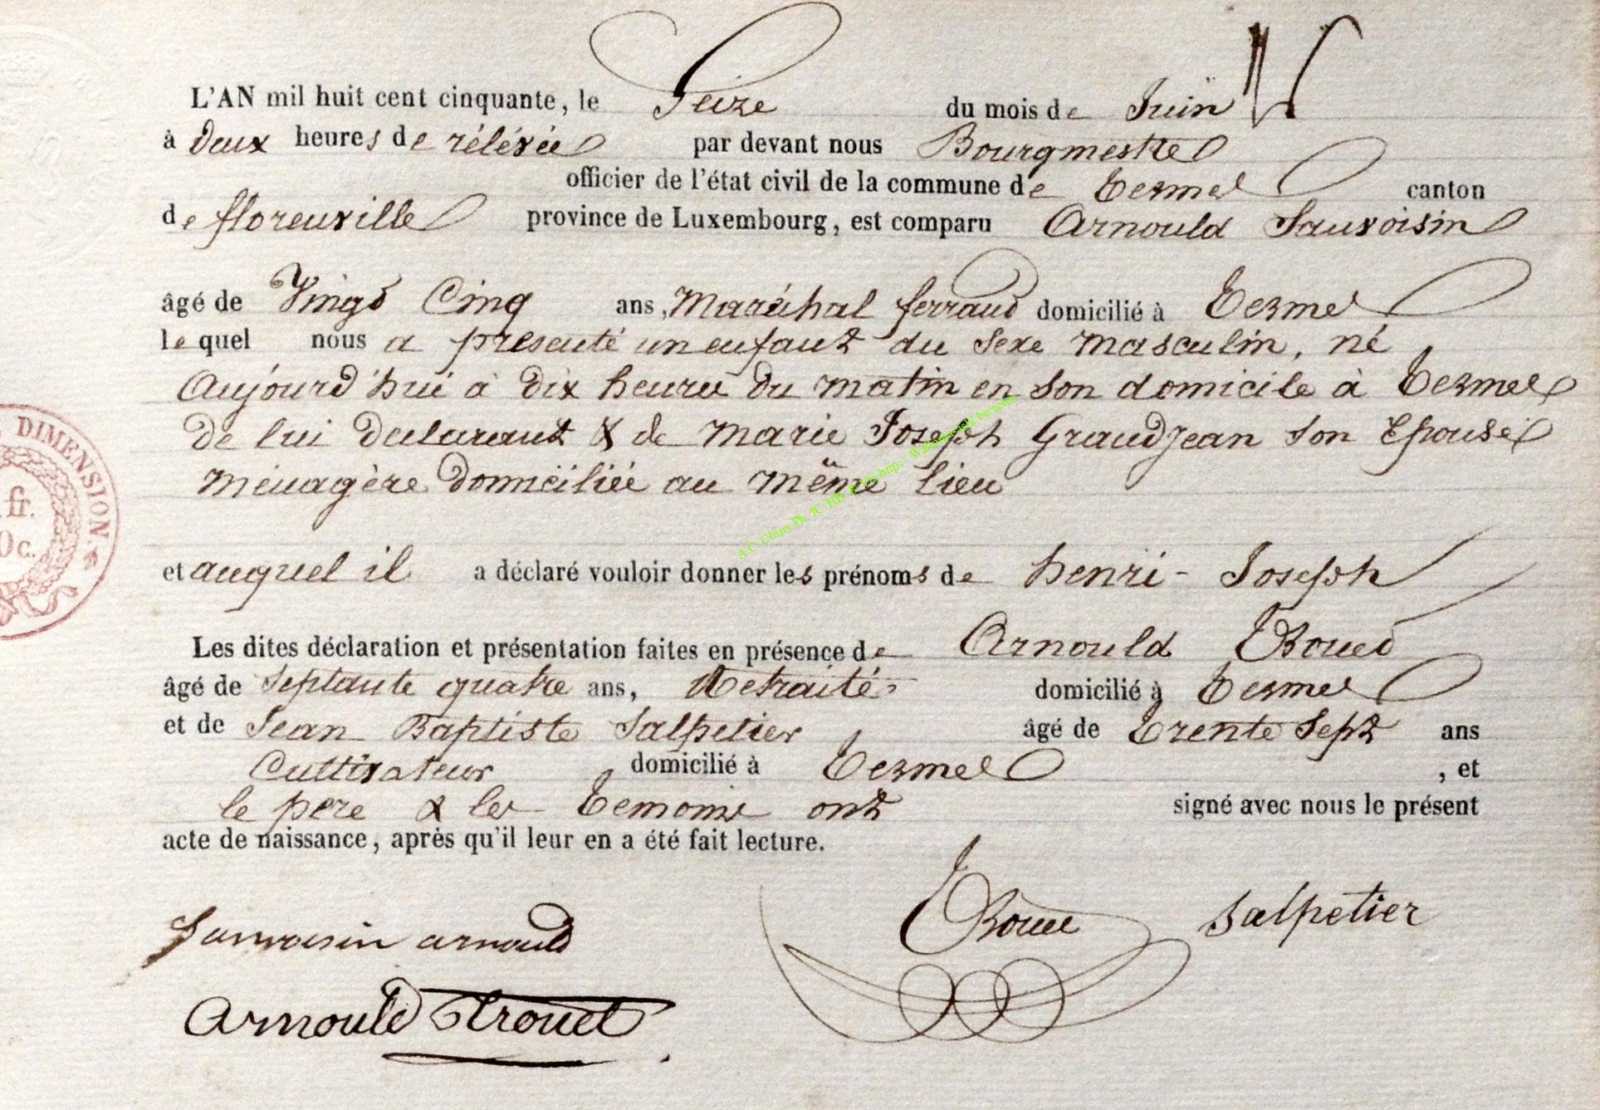 L'AN mil huit cent cinquante, le Seize du mois de Juin
à Deux heures de rélévée par devant nous Bourgmestre
officier de l'état civil de la commune de Termes canton
de florenville province de Luxembourg, est comparu Arnould Sauvoisin
âgé de Vingt Cinq ans, Maréchal ferrand domicilié à Termes
le quel nous a présenté un enfant du sexe masculin, né
Aujourd'hui à Dix heures du matin en son domicile à Termes
de lui déclarant & de Marie Joseph Grandjean son Epouse
Ménagère domiciliée au même lieu
et auquel il a déclaré vouloir donner les prénoms de henri-Joseph
Les dites déclaration et présentation faites en présence de Arnould
âgé de Septante quatre ans, Retraité domicilié à Termes
et de Jean Baptiste Salpetier âgé de Trente Sept ans
Cultivateur domicilié à Termes , et
le père & les Témoins ont signé avec nous le présent
acte de naissance, après qu'il leur en a été fait lecture.
Sauvoisin arnould
Salpetier
Arnould
DIMENSION.
fr.
0c.